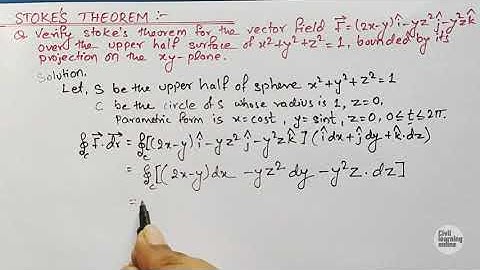 STOKE'S THEOREM :-
Q. Verify stoke's theorem for the vector field F⃗ = (2x-y)î - yz²ĵ - y²zk̂
over the upper half surface of x²+y²+z² = 1, bounded by its
projection on the xy-plane.
Solution.
Let, S be the upper half of sphere x²+y²+z² = 1
C be the circle of S whose radius is 1, z=0.
Parametric form is x=cost, y=sint, z=0, 0≤t≤2π.
∮c F⃗·dr⃗ = ∮c [(2x-y)î - yz²ĵ - y²zk̂] (îdx+ĵdy+k̂·dz)
= ∮c [(2x-y)dx - yz² dy - y²z·dz]
=
Civil
learning
online